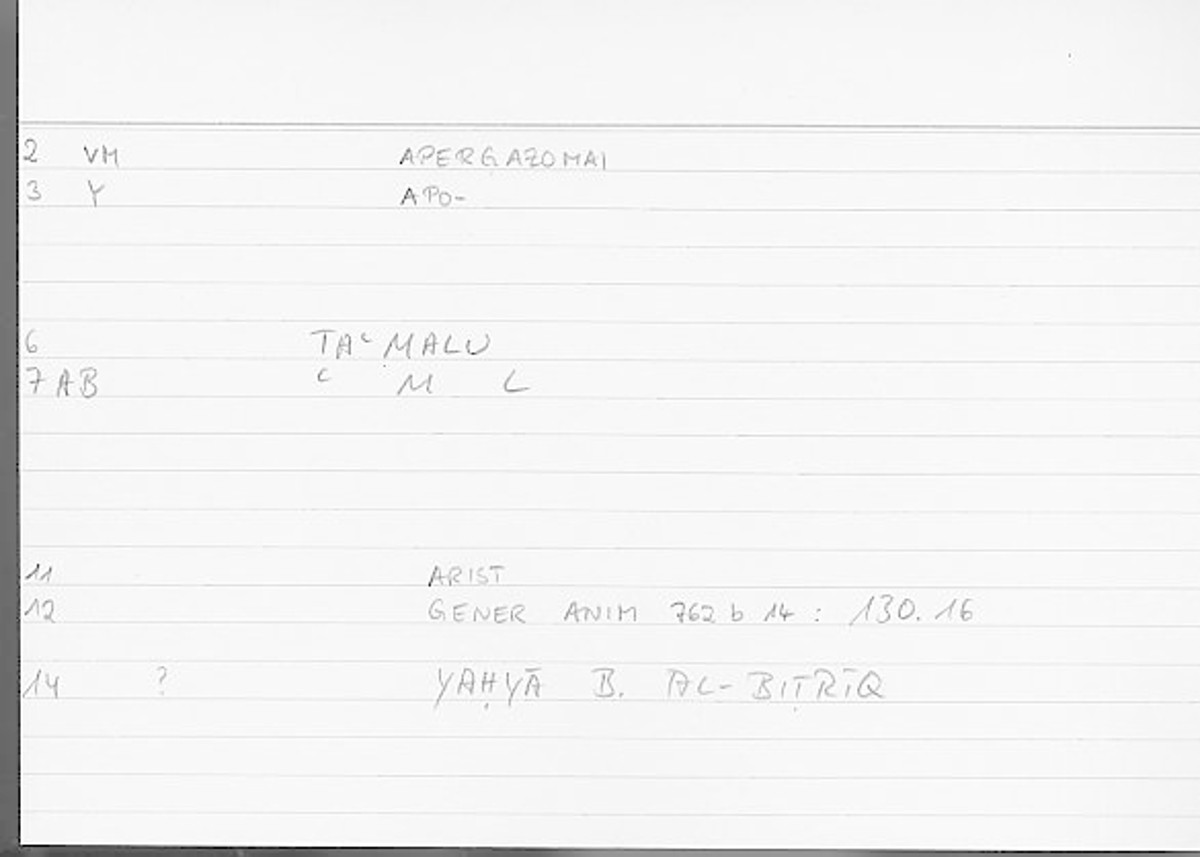 2 VM APERGAZOMAI
3 Y APO-
6 TAʿMALU
7 AB ʿ M L
11 ARIST
12 GENER ANIM 762 b 14 : 130.16
14 ? YAḤYĀ B. AL-BIṬRĪQ